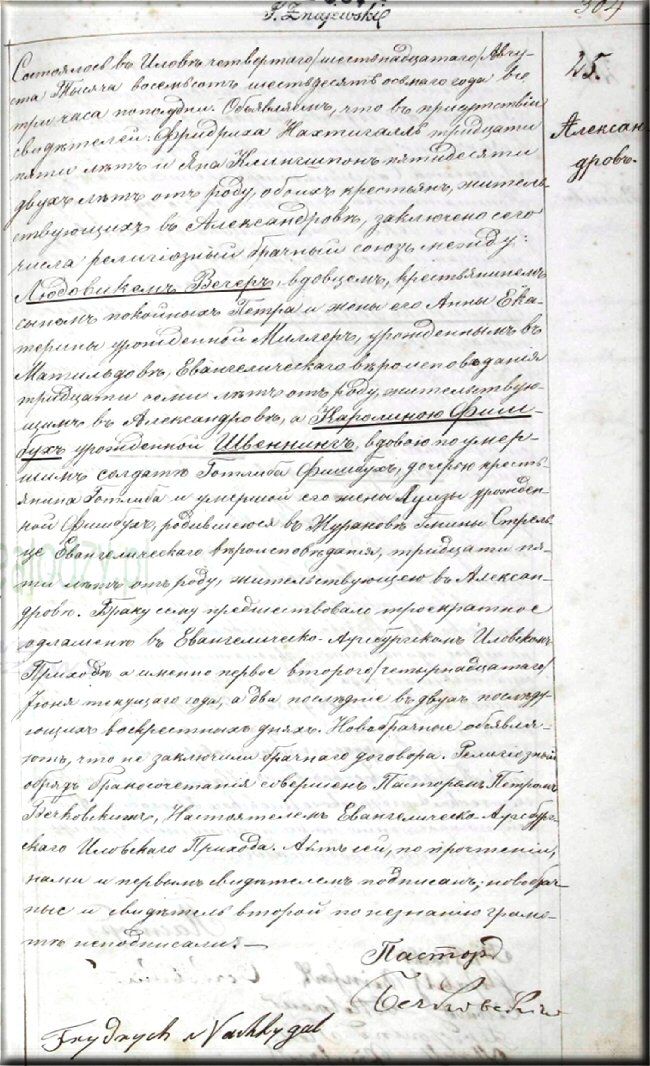 P. Znajewski
304
45.
Александровъ.
Состоялось въ Иловѣ четвертаго/шестнадцатаго/Авгу-
ста Тысяча восемьсотъ шестьдесятъ осьмаго года въ
три часа пополудни. Объявляемъ, что въ присутствіи
свидѣтелей: Фридриха Нахтигалъ тридцати
пяти лѣтъ и Яна пятидесяти
двухъ лѣтъ отъ роду, обоихъ крестьянъ, житель-
ствующихъ въ Александровѣ, заключено сего
числа религіозный брачный союзъ между:
Людовикемъ Вечеръ, вдовцемъ, крестьяниномъ
сыномъ покойныхъ Петра и жены его Анны Ека-
терины урожденной Миллеръ, урожденнымъ въ
Матильдовѣ, Евангелическаго вѣроисповѣданія
тридцати осми лѣтъ отъ роду, жительствую-
щимъ въ Александровѣ, а Каролиною Фиш-
бухъ урожденной Швеннингъ, вдовою по умер-
шимъ солдатѣ Готлибѣ Фишбухъ, дочерью кресть-
янина Готлиба и умершой его жены Луизы урожден-
ной Фишбухъ, родившеюся въ Жураковѣ Гмины Стрель-
це Евангелическаго вѣроисповѣданія, тридцати пя-
ти лѣтъ отъ роду, жительствующею въ Алексан-
дровѣ. Браку сему предшествовало троекратное
оглашеніе въ Евангелическо-Аугсбургскомъ Иловскомъ
Приходѣ а именно первое второго/четырнадцатаго/
Іюня текущаго года, а два послѣдніе въ двухъ послѣду-
ющихъ воскрестныхъ дняхъ. Новобрачные объявля-
ютъ, что не заключили брачнаго договора. Религіозный
обрядъ бракосочетанія совершенъ Пасторомъ Петромъ
Бечковскимъ, Настоятелемъ Евангелическо-Аугсбург-
скаго Иловскаго Прихода. Актъ сей, по прочтеніи,
нами и первымъ свидѣтелемъ подписанъ; новобрач-
ные и свидѣтель второй по незнанію грамо-
тѣ неподписались
Пасторъ
Бечковскій
Frydrych Nachtygal